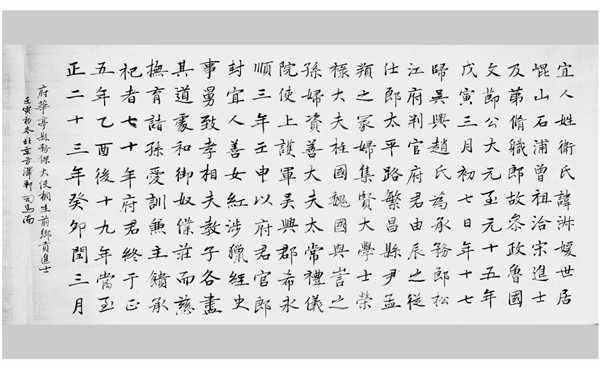 宜人姓衛氏諱淑媛世居
崐山石浦曾祖洽宋進士
及第脩職郎故參政魯國
文節公大元至元十五年
戊寅三月初七日年十七
歸吳興趙氏為承務郎松
江府判官府君由辰之從
仕郎太平路繁昌縣尹孟
頖之冢婦集賢大學士榮
祿大夫柱國魏國與訔之
孫婦資善大夫太常禮儀
院使上護軍吳興郡希永
順三年壬申以府君官郎
封宜人善女紅涉獵經史
事舅致孝相夫教子各盡
其道處和御奴僕莊而慈
撫育諸孫愛訓兼主饋承
祀者七十年府君終于正
五年乙酉後十九年當至
正二十三年癸卯閏三月
府華亭縣務課大使相生前鄉貢進士
壬寅初冬北京方澤軒